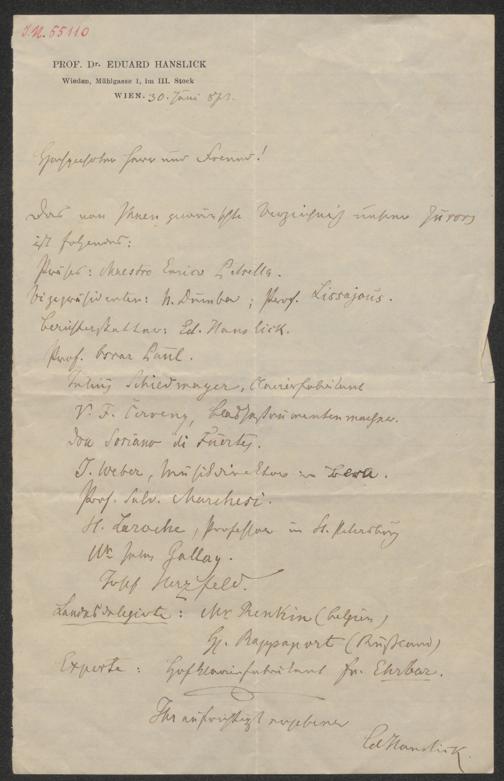 I.N. 55110
PROF. Dr. EDUARD HANSLICK
Wieden, Mühlgasse 1, im III. Stock
WIEN. 30. Juni 873.
Hochgeehrter Herr und Freund!
Das von Ihnen gewünschte Verzeichniß unserer Jurors
ist folgendes:
Präses: Maestro Enrico Petrella.
Vizepräsidenten: N. Dumba; Prof. Lissajous.
Berichterstatter: Ed. Hanslick.
Prof. Oscar Paul.
Julius Schiedmayer, Clavierfabrikant
V. F. Červeny, Blasinstrumentenmacher.
Don Soriano di Fuertes.
J. Weber, Musikdirektor in Bern.
Prof. Salv. Marchesi.
H. Laroche, Professor in St. Petersburg
Mr Jules Gallay.
Josef Herzfeld.
Landesdelegirte: Mr Renkin (Belgien)
Hr. Rappaport (Rußland)
Experte: Hofklavierfabrikant Fr. Ehrbar.
Ihr aufrichtigst ergebener
Ed Hanslick.